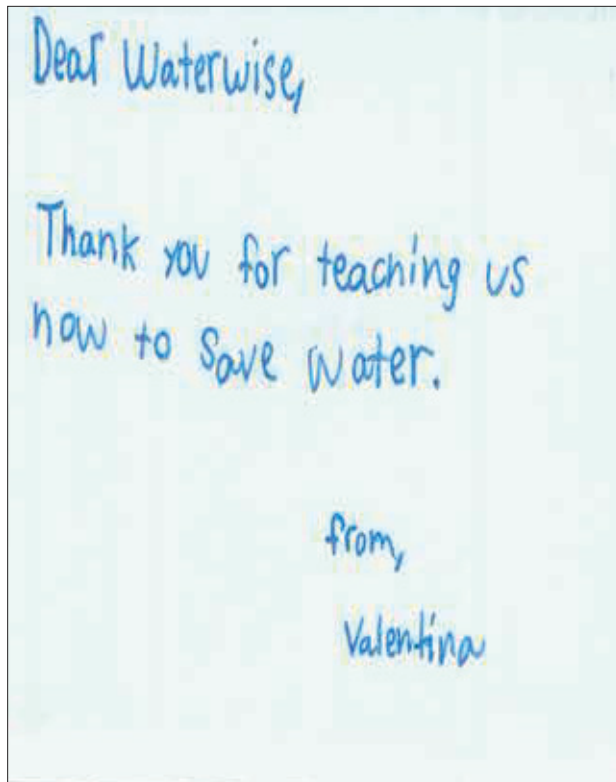 Dear Waterwise,
Thank you for teaching us
how to save water.
from,
Valentina